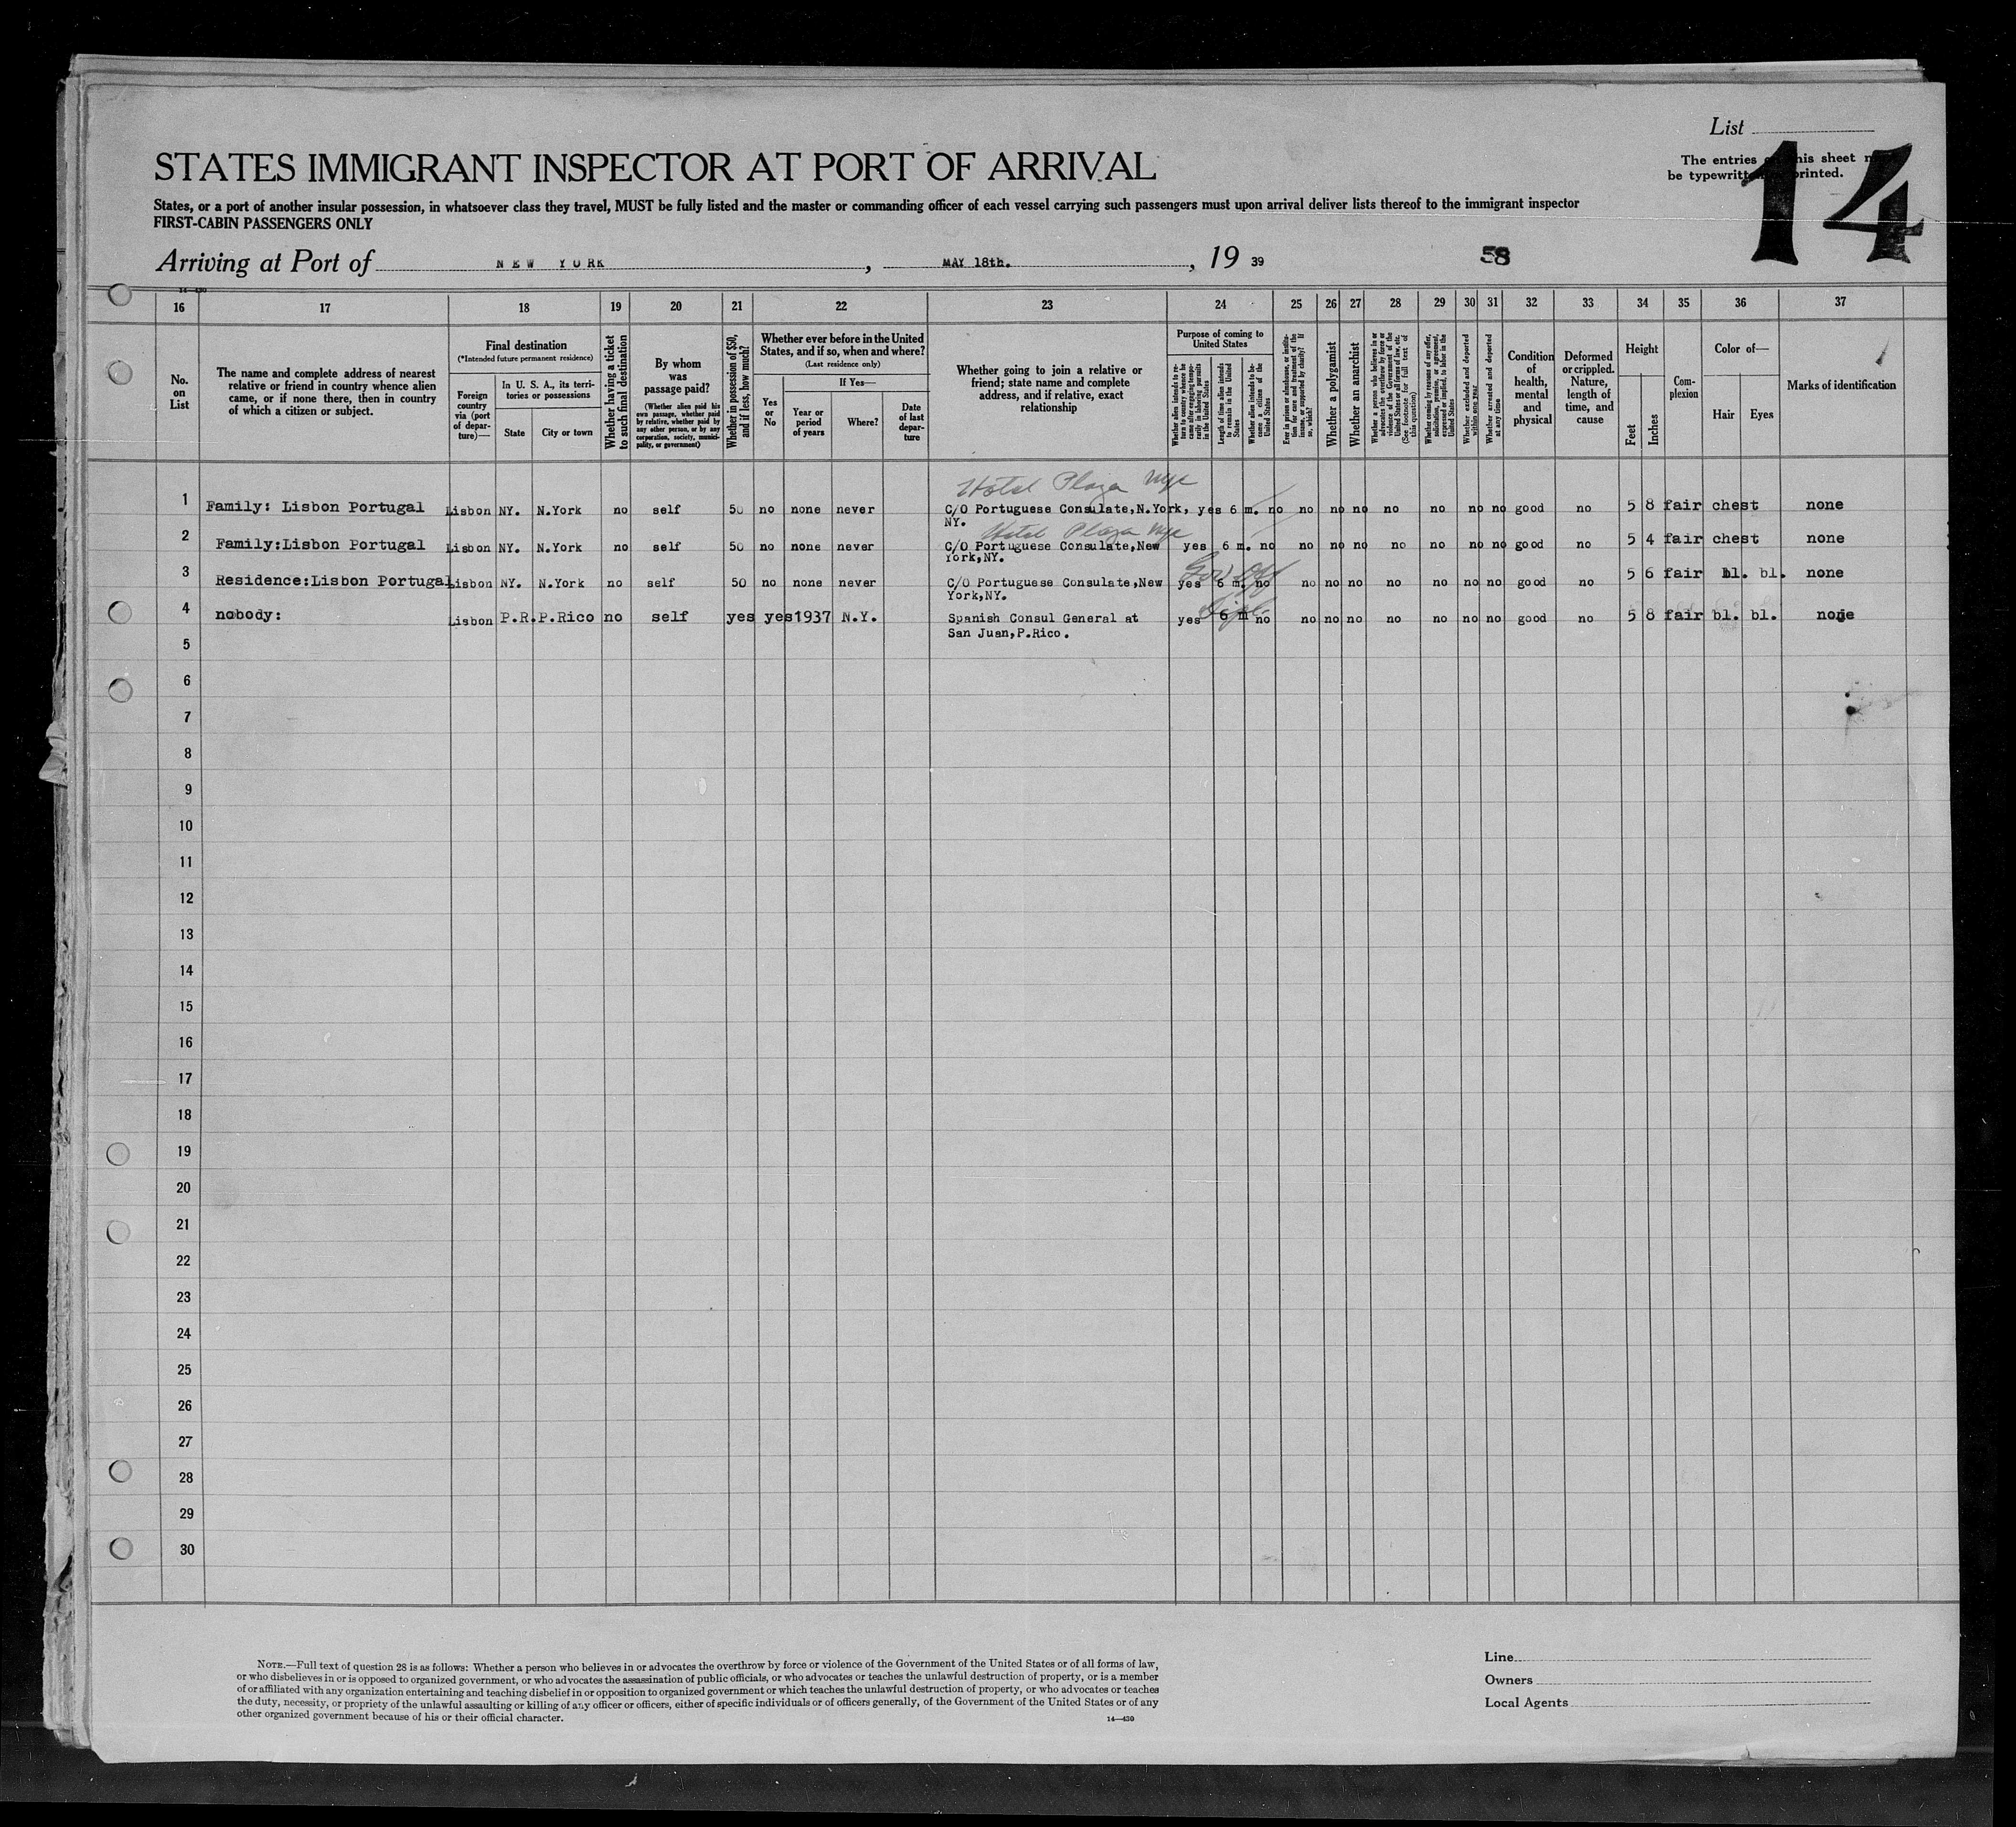 List
14
The entries on this sheet
be typewritten printed.
STATES IMMIGRANT INSPECTOR AT PORT OF ARRIVAL
States, or a port of another insular possession, in whatsoever class they travel, MUST be fully listed and the master or commanding officer of each vessel carrying such passengers must upon arrival deliver lists thereof to the immigrant inspector
FIRST-CABIN PASSENGERS ONLY
Arriving at Port of NEW YORK, MAY 18th., 19 39
58
14—430
16 17 18 19 20 21 22 23 24 25 26 27 28 29 30 31 32 33 34 35 36 37
No. on List
The name and complete address of nearest relative or friend in country whence alien came, or if none there, then in country of which a citizen or subject.
Final destination
(*Intended future permanent residence)
Foreign country via (port of departure)—
In U. S. A., its territories or possessions
State
City or town
Whether having a ticket to such final destination
By whom was passage paid?
(Whether alien paid his own passage, whether paid by relative, whether paid by any other person, or by any corporation, society, municipality, or government)
Whether in possession of $50, and if less, how much?
Whether ever before in the United States, and if so, when and where?
(Last residence only)
Yes or No
If Yes—
Year or period of years
Where?
Date of last departure
Whether going to join a relative or friend; state name and complete address, and if relative, exact relationship
Purpose of coming to United States
Whether alien intends to return to country whence he came after engaging temporarily in laboring pursuits in the United States
Length of time alien intends to remain in the United States
Whether alien intends to become a citizen of the United States
Ever in prison or almshouse, or institution for care and treatment of the insane, or supported by charity? If so, which?
Whether a polygamist
Whether an anarchist
Whether a person who believes in or advocates the overthrow by force or violence of the Government of the United States or all forms of law, etc. (See footnote for full text of this question)
Whether coming by reason of any offer, solicitation, promise, or agreement, expressed or implied, to labor in the United States
Whether excluded and deported within one year
Whether arrested and deported at any time
Condition of health, mental and physical
Deformed or crippled. Nature, length of time, and cause
Height
Feet
Inches
Complexion
Color of—
Hair
Eyes
Marks of identification
Hotel Plaza Nyc
1 Family: Lisbon Portugal Lisbon NY. N.York no self 50 no none never C/O Portuguese Consulate,N.York, yes 6 m. no no no no no no no no good no 5 8 fair chest none
NY.
Hotel Plaza Nyc
2 Family:Lisbon Portugal Lisbon NY. N.York no self 50 no none never C/O Portuguese Consulate,New yes 6 m. no no no no no no no no good no 5 4 fair chest none
York,NY.
Gov Off
3 Residence:Lisbon Portugal Lisbon NY. N.York no self 50 no none never C/O Portuguese Consulate,New yes 6 m. no no no no no no no no good no 5 6 fair bl. bl. none
York,NY.
Dipl.
4 nobody: Lisbon P.R. P.Rico no self yes yes 1937 N.Y. Spanish Consul General at yes 6 m no no no no no no no no good no 5 8 fair bl. bl. none
San Juan,P.Rico.
5
6
7
8
9
10
11
12
13
14
15
16
17
18
19
20
21
22
23
24
25
26
27
28
29
30
NOTE.—Full text of question 28 is as follows: Whether a person who believes in or advocates the overthrow by force or violence of the Government of the United States or of all forms of law,
or who disbelieves in or is opposed to organized government, or who advocates the assassination of public officials, or who advocates or teaches the unlawful destruction of property, or is a member
of or affiliated with any organization entertaining and teaching disbelief in or opposition to organized government or which teaches the unlawful destruction of property, or who advocates or teaches
the duty, necessity, or propriety of the unlawful assaulting or killing of any officer or officers, either of specific individuals or of officers generally, of the Government of the United States or of any
other organized government because of his or their official character.
14—430
Line
Owners
Local Agents